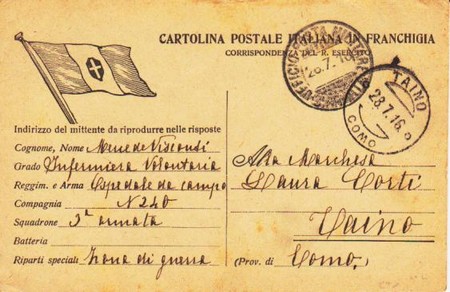 CARTOLINA POSTALE ITALIANA IN FRANCHIGIA
CORRISPONDENZA DEL R. ESERCITO
TAINO
28.7.16
COMO
Indirizzo del mittente da riprodurre nelle risposte
Cognome, Nome Visconti
Grado Infermiera Volontaria
Reggim. e Arma Ospedale da campo
Compagnia N 240
Squadrone 3ª armata
Batteria
Riparti speciali Zona di guerra
Alla Marchesa
Laura Corti
Taino
(Prov. di Como.)